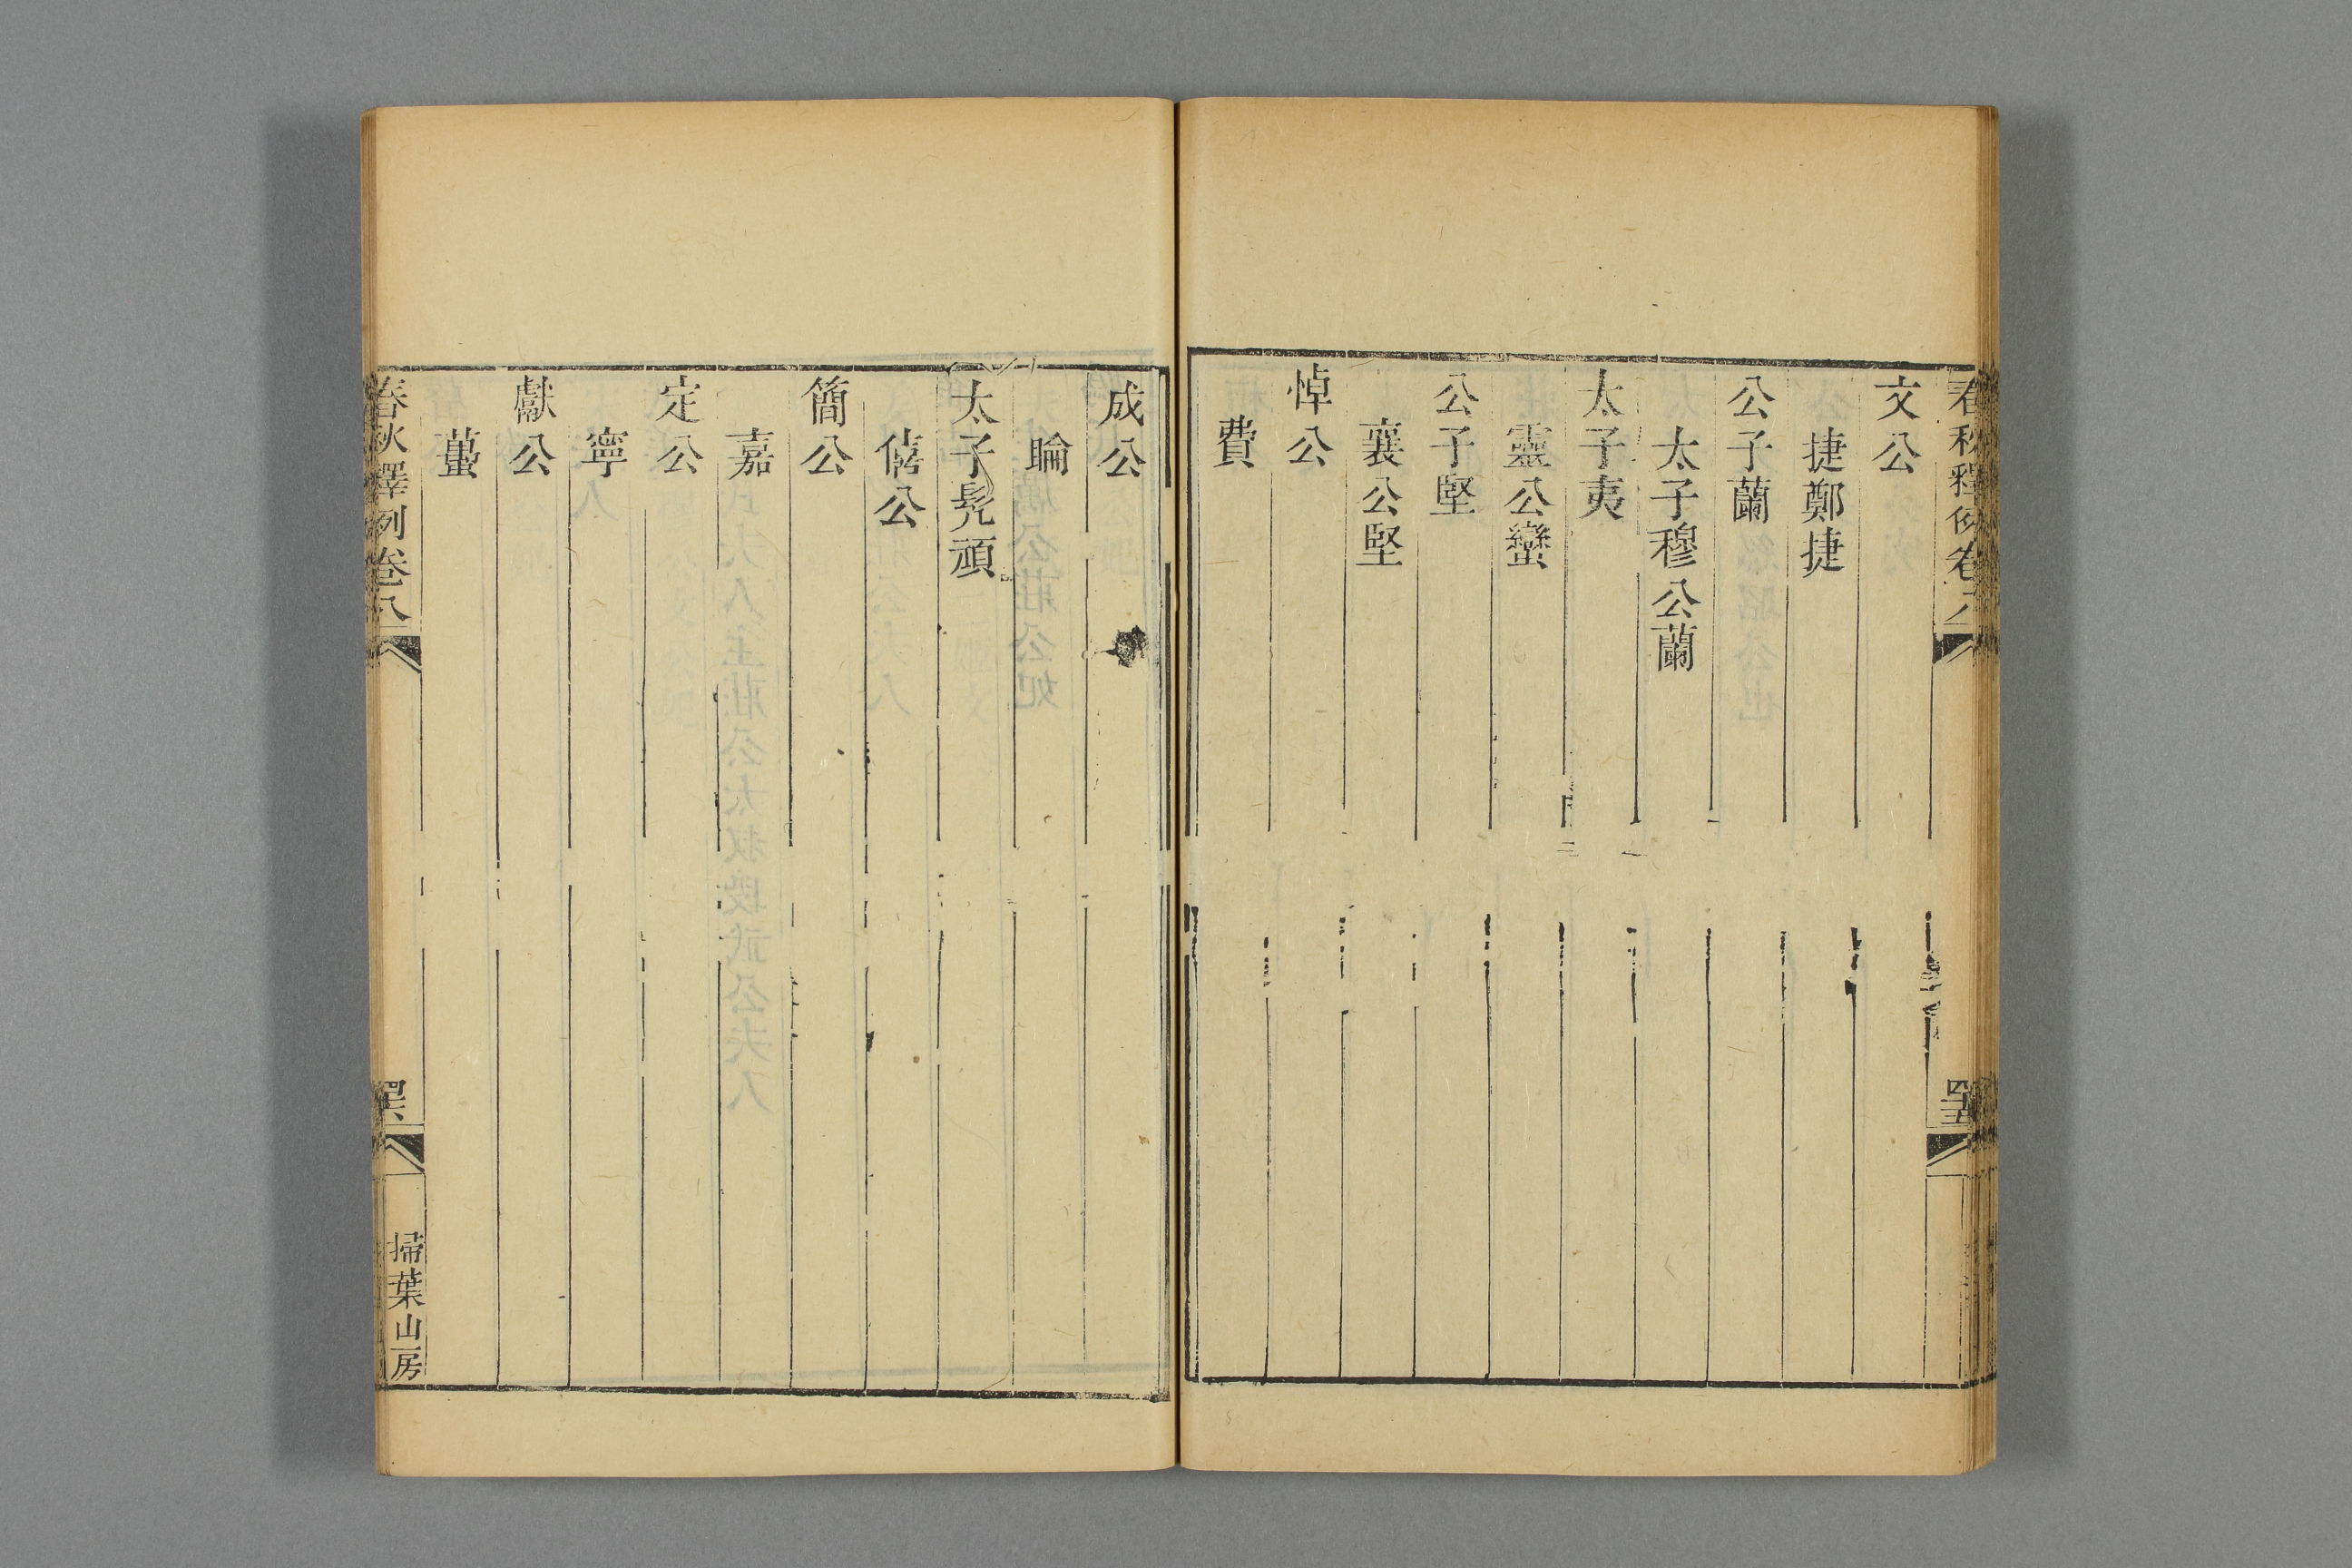 春秋釋例卷八
四十五
文公
捷鄭捷
公子蘭
太子穆公蘭
太子夷
靈公蠻
公子堅
襄公堅
悼公
費
成公
睔
太子髡頑
僖公
簡公
嘉
定公
寧
獻公
蠆
春秋釋例卷八
掃葉山房